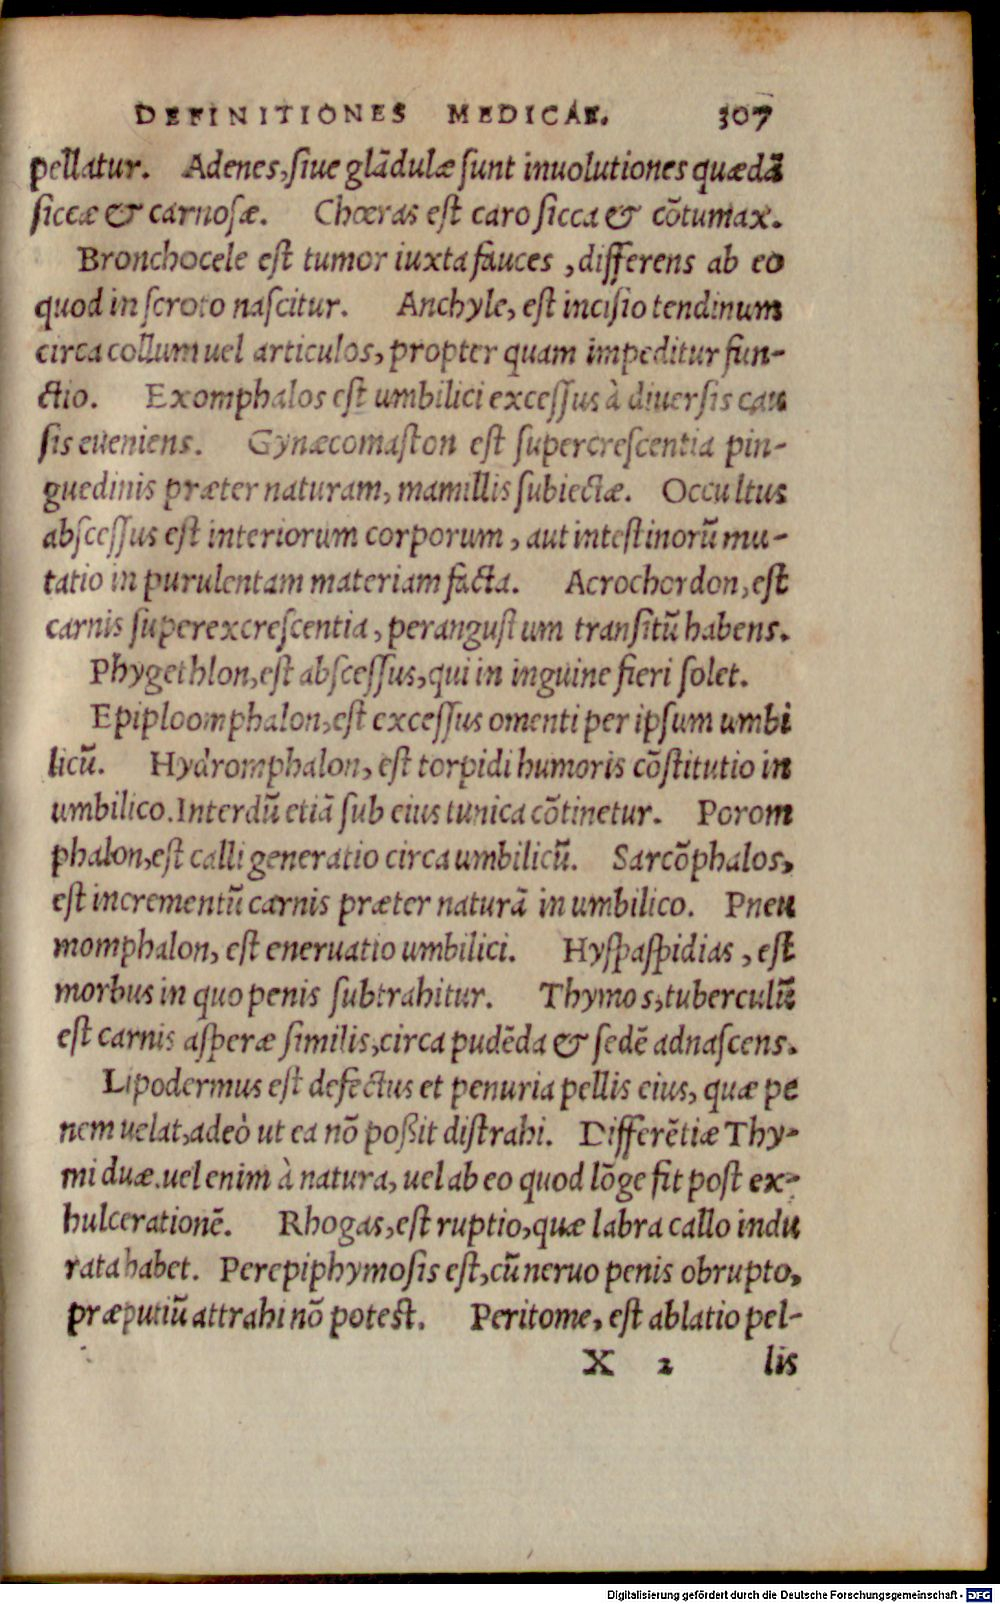 DEFINITIONES MEDICAE. 307
pellatur. Adenes, siue glãdulæ sunt inuolutiones quædã
siccæ & carnosæ. Chœras est caro sicca & cõtumax.
Bronchocele est tumor iuxta fauces, differens ab eo
quod in scroto nascitur. Anchyle, est incisio tendinum
circa collum uel articulos, propter quam impeditur fun-
ctio. Exomphalos est umbilici excessus à diuersis cau
sis eueniens. Gynæcomaston est supercrescentia pin-
guedinis præter naturam, mamillis subiectæ. Occultus
abscessus est interiorum corporum, aut intestinorũ mu-
tatio in purulentam materiam facta. Acrochordon, est
carnis superexcrescentia, perangustum transitũ habens.
Phygethlon, est abscessus, qui in inguine fieri solet.
Epiploomphalon, est excessus omenti per ipsum umbi
licũ. Hydromphalon, est torpidi humoris cõstitutio in
umbilico. Interdũ etiã sub eius tunica cõtinetur. Porom
phalon, est calli generatio circa umbilicũ. Sarcõphalos,
est incrementũ carnis præter naturã in umbilico. Pneu
momphalon, est eneruatio umbilici. Hyspaspidias, est
morbus in quo penis subtrahitur. Thymos, tuberculũ
est carnis asperæ similis, circa pudẽda & sedẽ adnascens.
Lipodermus est defectus et penuria pellis eius, quæ pe
nem uelat, adeò ut ea nõ poßit distrahi. Differẽtiæ Thy-
mi duæ. uel enim à natura, uel ab eo quod lõge fit post ex-
hulcerationẽ. Rhogas, est ruptio, quæ labra callo indu
rata habet. Perepiphymosis est, cũ neruo penis obrupto,
præputiũ attrahi nõ potest. Peritome, est ablatio pel-
X 2 lis
Digitalisierung gefördert durch die Deutsche Forschungsgemeinschaft - DFG